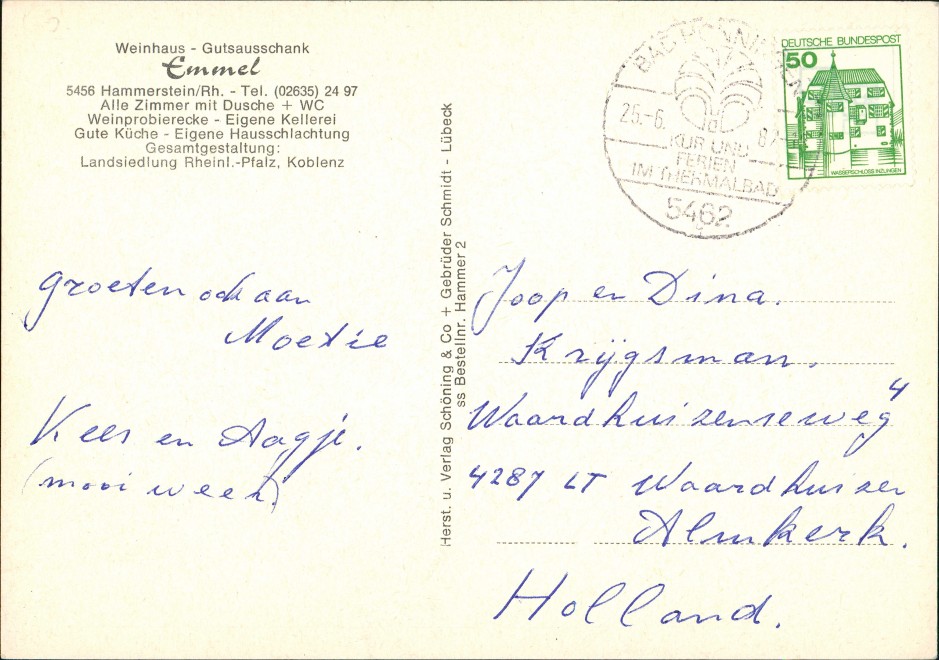 Weinhaus - Gutsausschank
Emmel
5456 Hammerstein/Rh. - Tel. (02635) 24 97
Alle Zimmer mit Dusche + WC
Weinprobierecke - Eigene Kellerei
Gute Küche - Eigene Hausschlachtung
Gesamtgestaltung:
Landsiedlung Rheinl.-Pfalz, Koblenz
groeten ook aan
Moetie
Kees en Aagje.
(mooi weer)
Herst. u. Verlag Schöning & Co + Gebrüder Schmidt - Lübeck
ss Bestellnr. Hammer 2
BAD HÖNNINGEN
25.-6.
KUR UND
FERIEN
IM THERMALBAD
5462
DEUTSCHE BUNDESPOST
50
WASSERSCHLOSS INZLINGEN
Joop en Dina.
Krijgsman.
Waardhuizenseweg 4
4287 LT Waardhuizen
Almkerk.
Holland.